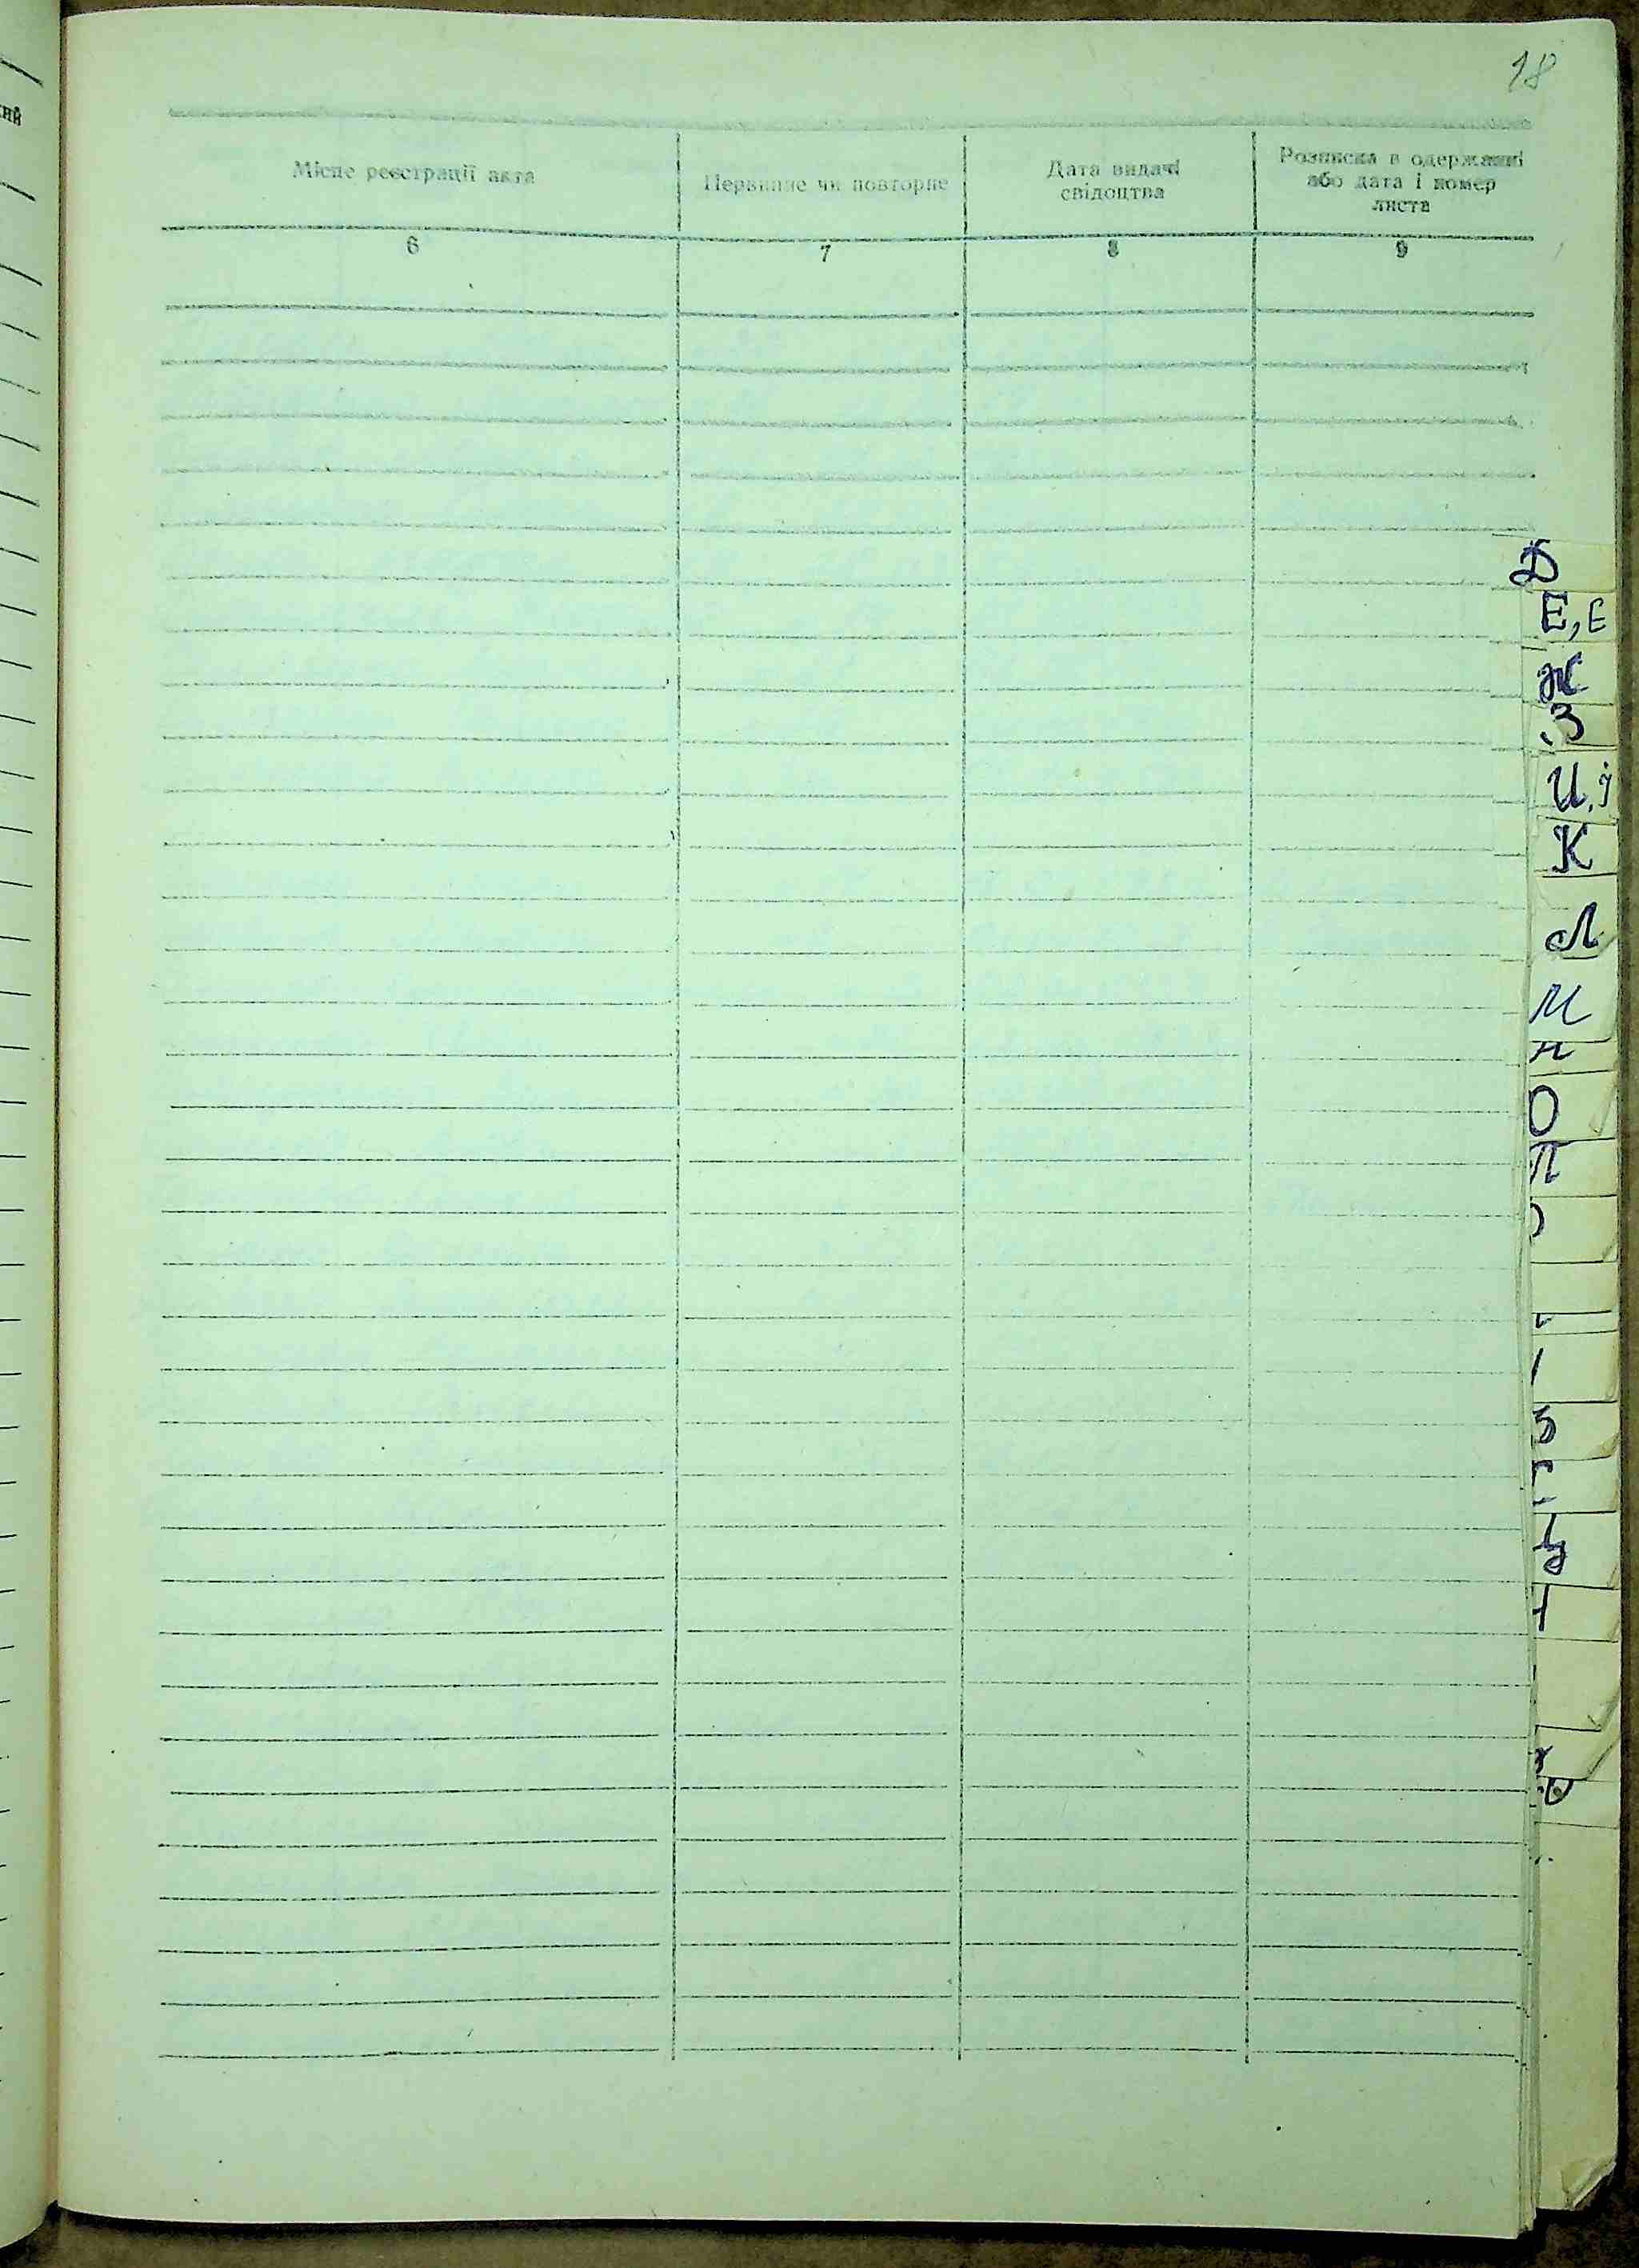 18
Місце реєстрації акта
Первинне чи повторне
Дата видачі
свідоцтва
Розписка в одержанні
або дата і номер
листа
6
7
8
9
Д
Е, Є
Ж
З
И, І
К
Л
М
Н
О
П